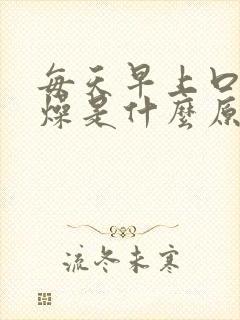 每天早上口
燥是什麼原
流冬未寒